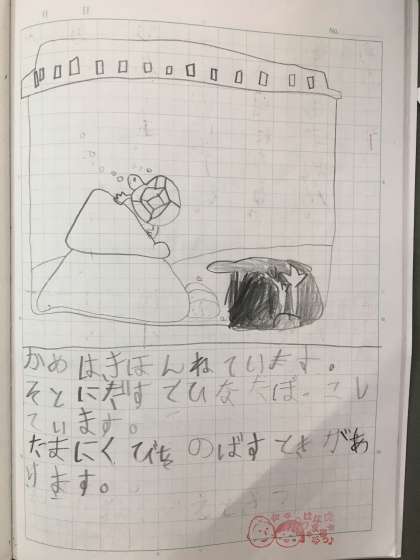 No.
かめはきほんねています。
そとにだすでひなたぼっこし
ています。
たまにくびをのばすときがあ
ります。